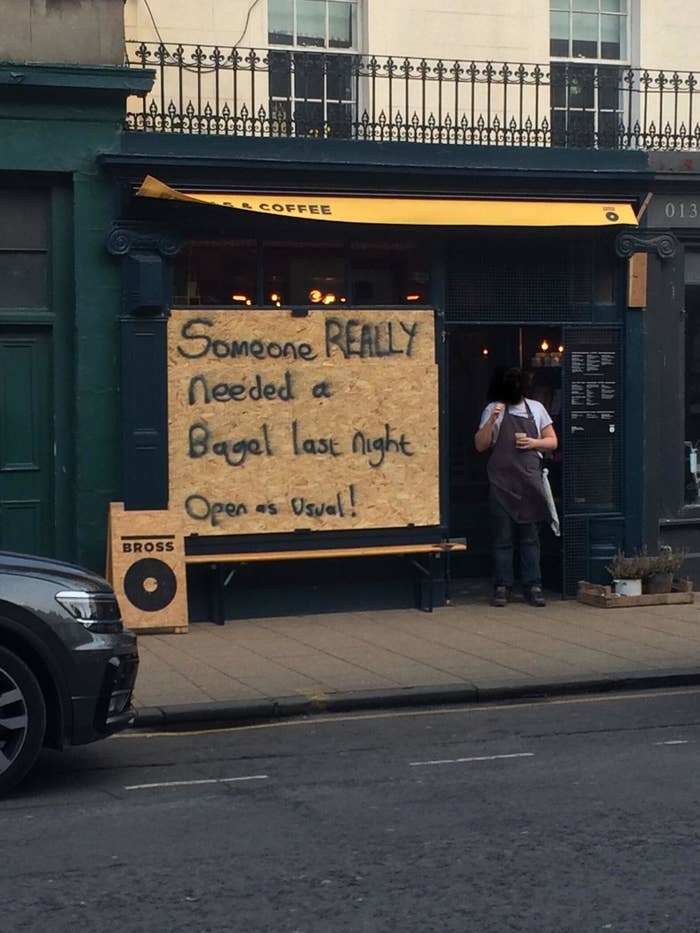 & COFFEE
013
Someone REALLY
needed a
Bagel last night
Open as Usual!
BROSS